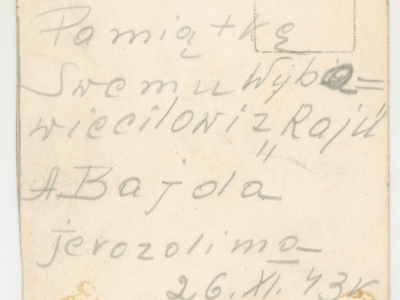 Pamiątkę
Swemu Wyba=
wiecilowi z "Raju"
A. Bajda
jerozolima
26. XI. 43 r